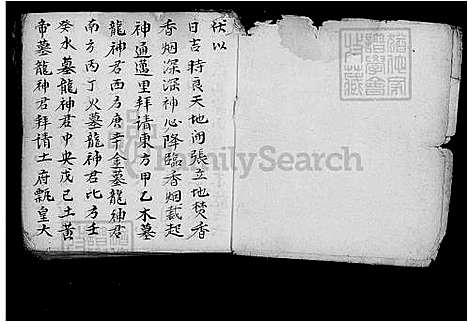 伏以
日吉時良天地開張立地焚香
香烟深深神心降臨香烟載起
神通萬里拜請東方甲乙木墓
龍神君西方庚辛金墓龍神君
南方丙丁火墓龍神君北方壬
癸水墓龍神君中央戊己土黃
帝墓龍神君拜請土府瓢皇大
FamilySearch